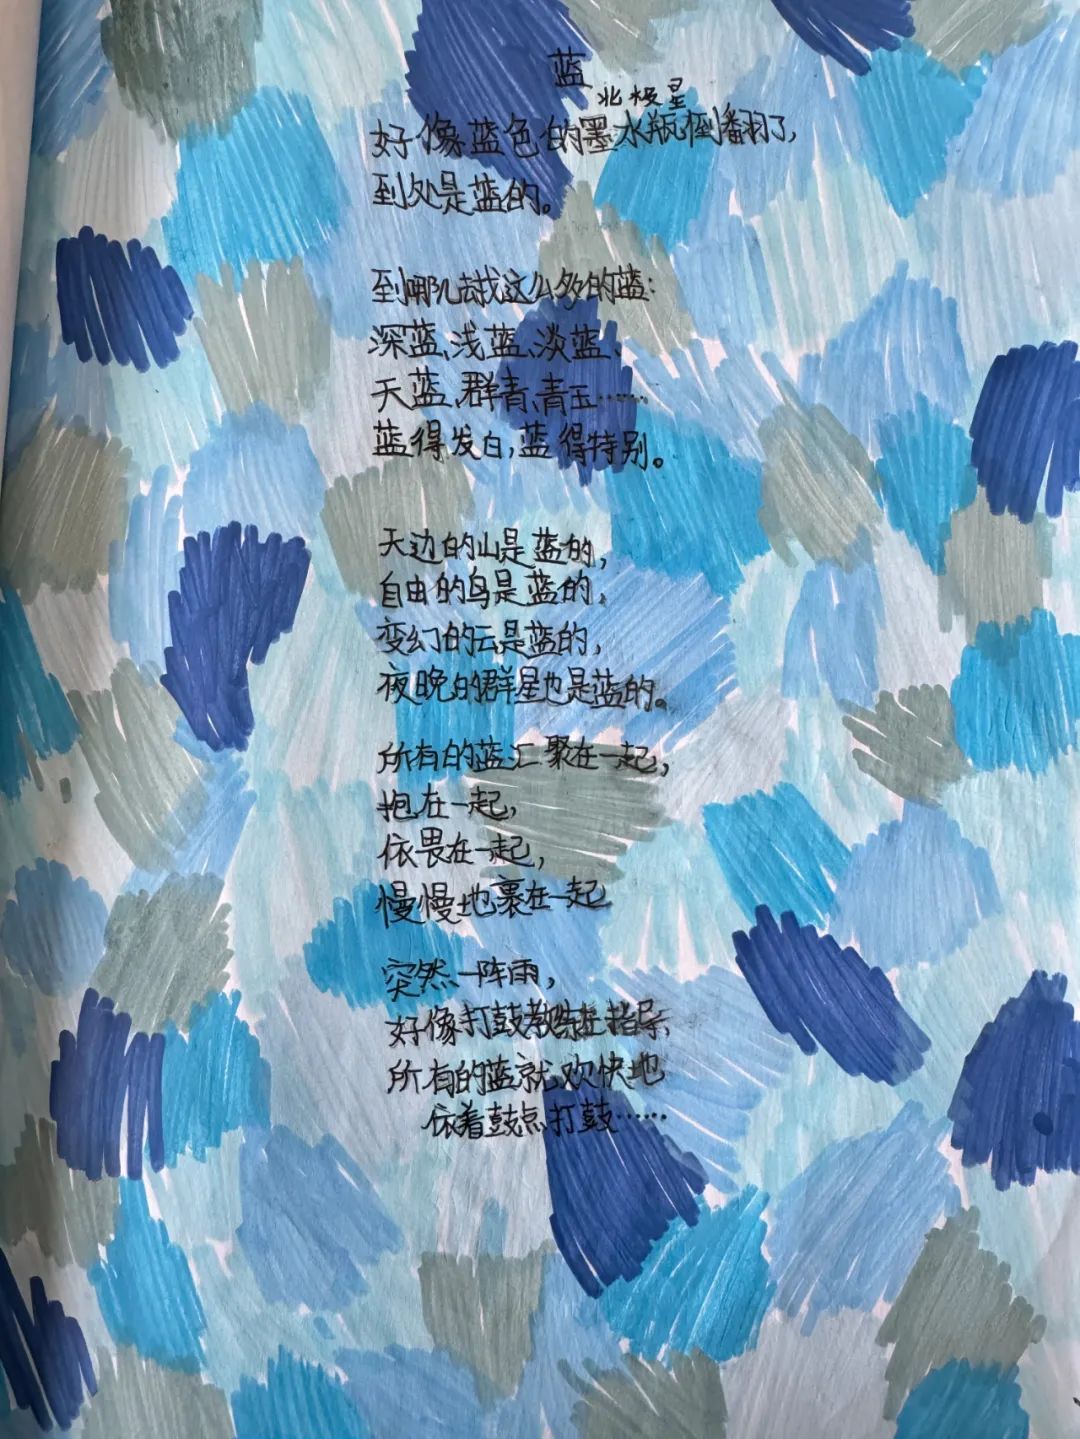 蓝
北极星
好像蓝色的墨水瓶倒翻了，
到处是蓝的。
到哪儿去找这么多的蓝：
深蓝、浅蓝、淡蓝、
天蓝、群青、青玉……
蓝得发白，蓝得特别。
天边的山是蓝的，
自由的鸟是蓝的，
变幻的云是蓝的，
夜晚的群星也是蓝的。
所有的蓝汇聚在一起，
抱在一起，
依畏在一起，
慢慢地裹在一起
突然一阵雨，
好像打鼓教练在指导
所有的蓝就欢快地
依着鼓点打鼓……